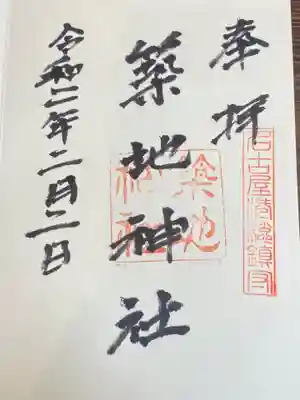 奉拝
名古屋港総鎮守
築地神社
築地
神社
令和二年二月二日